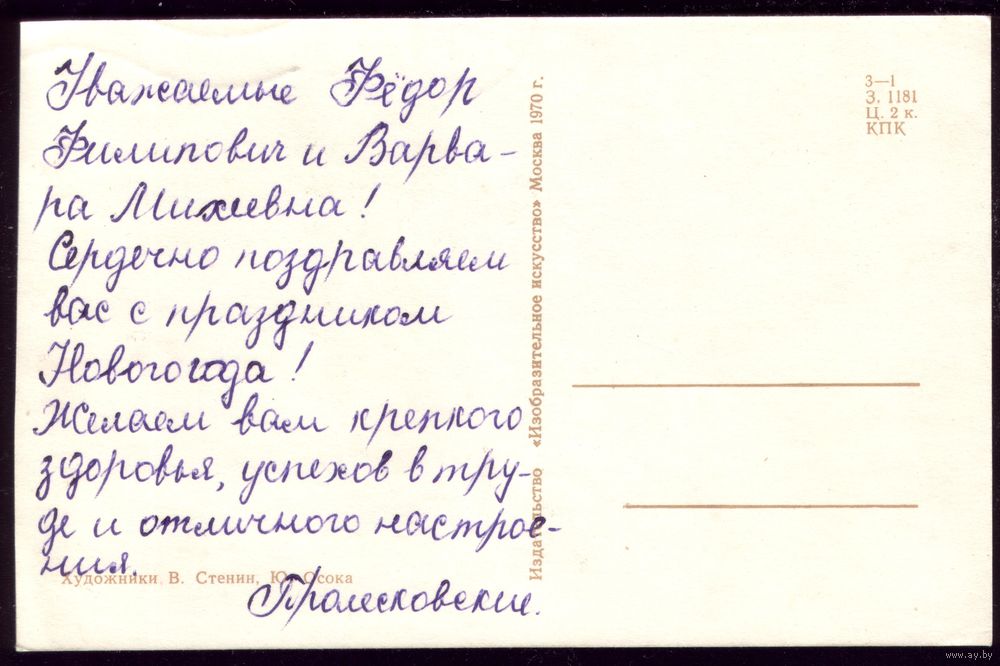 Уважаемые Фёдор
Филипович и Варва-
ра Михеевна!
Сердечно поздравляем
вас с праздником
Нового года!
Желаем вам крепкого
здоровья, успехов в тру-
де и отличного настрое-
ния.
Художники В. Стенин, Ю. Осока
Издательство «Изобразительное искусство» Москва 1970 г.
3—1
З. 1181
Ц. 2 к.
КПК
www.ay.by